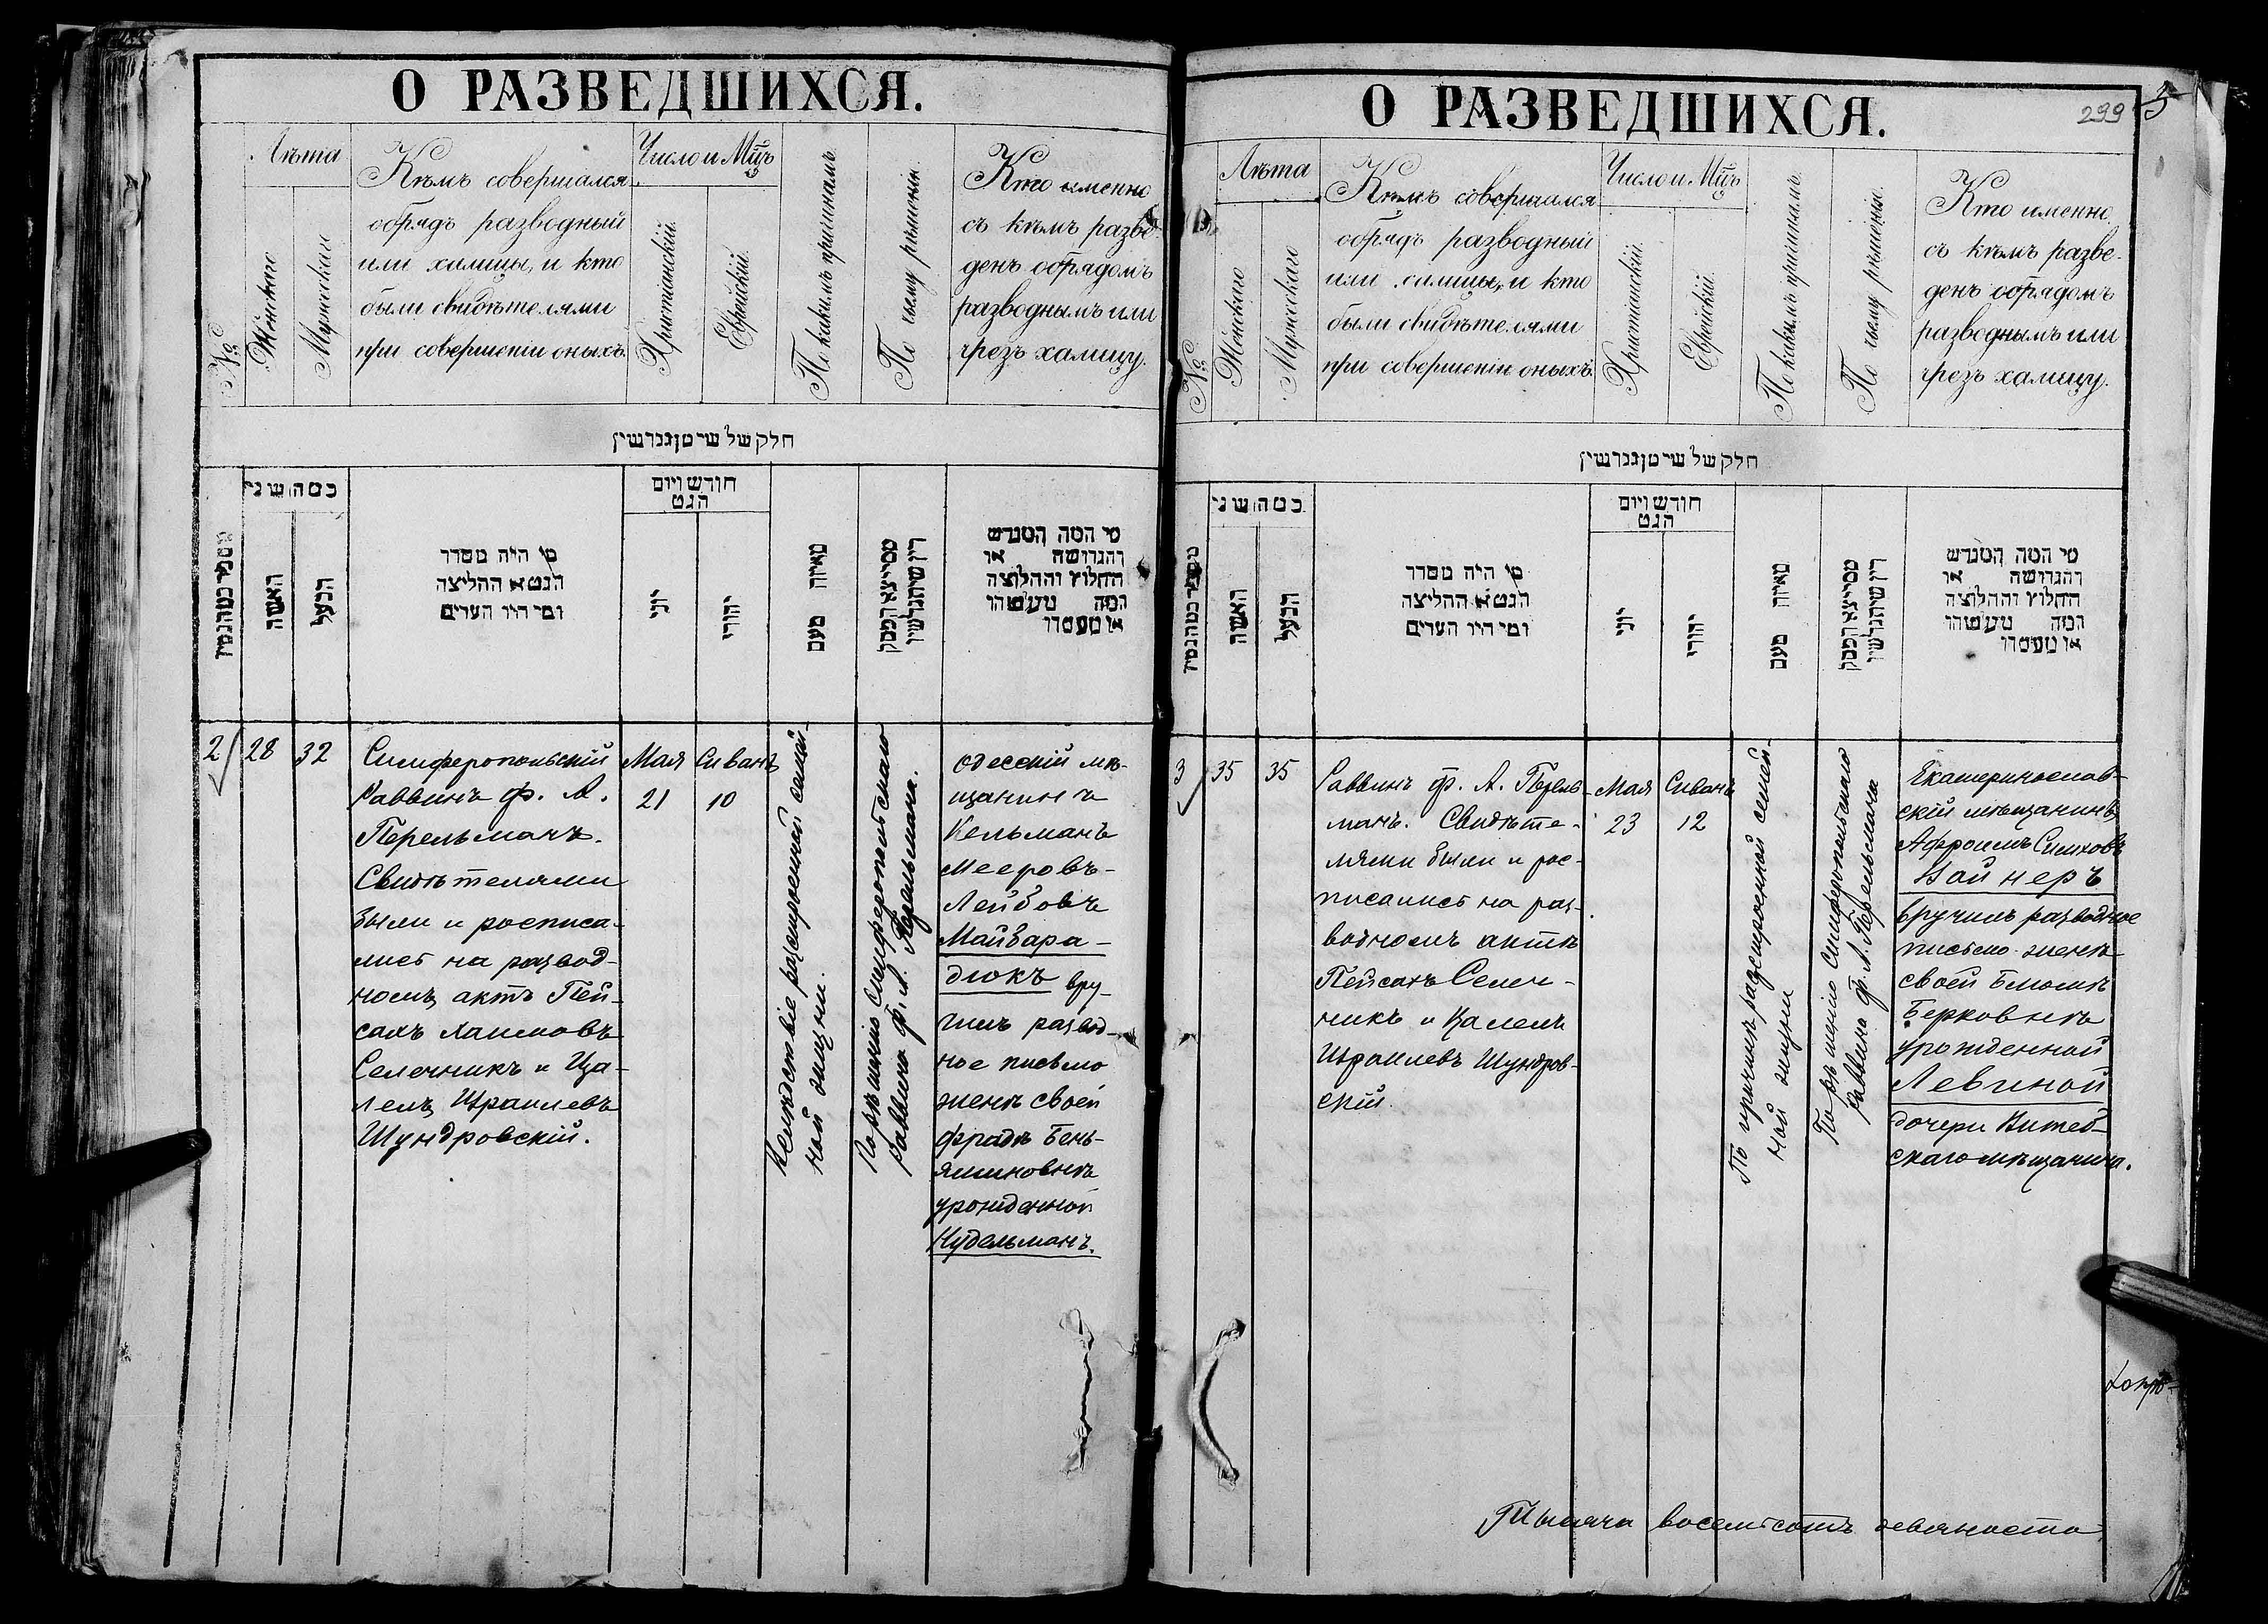 О РАЗВЕДШИХСЯ.
№
Лѣта
Женскаго
Мужескаго
Кѣмъ совершался
обрядъ разводный
или халицы, и кто
были свидѣтелями
при совершеніи оныхъ.
Число и Мѣцъ
Христіанскій.
Еврейскій.
По какимъ причинамъ.
По чьему рѣшенію.
Кто именно
съ кѣмъ разве-
денъ обрядомъ
разводнымъ или
чрезъ халицу.
חלק של שי מן גרושין
כמה שני
האשה
הבעל
מי היה מסדר
הגט א החליצה
ומי היו העדים
חודש ויום
הגט
יוני
יהודי
מאיזה טעם
מי המה המגרש
והגרושה או
החלוץ והחלוצה
המה
2
28
32
Симферопольскій
Раввинъ Ф. А.
Перельманъ.
Свидѣтелями
были и росписа-
лись на развод-
номъ актѣ Пей-
сахъ Хаимовъ
Селечникъ и Ца-
лелъ Израилевъ
Шундровскій.
Мая
21
Сиванъ
10
Вслѣдствіе разстроенной семей-
ной жизни.
По рѣшенію Симферопольскаго
раввина Ф. А. Перельмана.
Одесскій мѣ-
щанинъ
Кельманъ
Мееровъ-
Лейбовъ
Майбара-
дюкъ вру-
чилъ развод-
ное письмо
женѣ своей
Фрадѣ Бень-
яминовнѣ
урожденной
Кудельманъ.
О РАЗВЕДШИХСЯ.
299
5
№
Лѣта
Женскаго
Мужескаго
Кѣмъ совершался
обрядъ разводный
или халицы, и кто
были свидѣтелями
при совершеніи оныхъ.
Число и Мѣцъ
Христіанскій.
Еврейскій.
По какимъ причинамъ.
По чьему рѣшенію.
Кто именно
съ кѣмъ разве-
денъ обрядомъ
разводнымъ или
чрезъ халицу.
חלק של שי מן גרושין
כמה שני
האשה
הבעל
מי היה מסדר
הגט א החליצה
ומי היו העדים
חודש ויום
הגט
יוני
יהודי
מאיזה טעם
מי המה המגרש
והגרושה או
החלוץ והחלוצה
המה
3
35
35
Раввинъ Ф. А. Перель-
манъ. Свидѣте-
лями были и рос-
писались на раз-
водномъ актѣ
Пейсахъ Селеч-
никъ и Цалелъ
Израилевъ Шундров-
скій.
Мая
23
Сиванъ
12
По причинѣ разстроенной семей-
ной жизни
По рѣшенію Симферопольскаго
раввина Ф. А. Перельмана
Екатеринослав-
скій мѣщанинъ
Афроимъ Симховъ
Вайнеръ
вручилъ разводное
письмо женѣ
своей Блюмѣ
Берковнѣ
урожденной
Левиной
дочери Витеб-
скаго мѣщанина.
Тысяча восемьсотъ девяносто